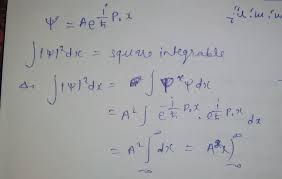 Ψ = Ae^{i/ħ P₀x}
∫|Ψ|²dx = square integrable
∫|Ψ|²dx = ∫ Ψ*Ψdx
= A² ∫ e^{-i/ħ P₀x} . e^{i/ħ P₀x} dx
= A² ∫_{-∞}^{∞} dx = A²x)_{-∞}^{∞}